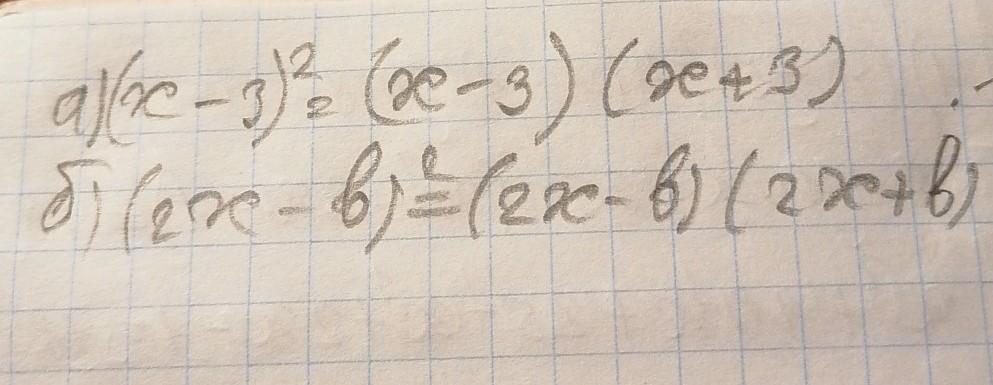 а)(x-3)²=(x-3)(x+3)
б)(2x-b)²=(2x-b)(2x+b)